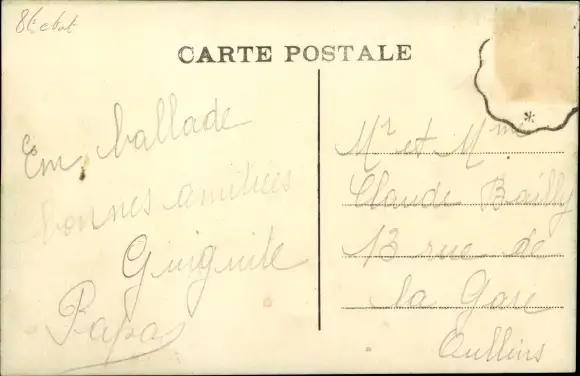 CARTE POSTALE
Em ballade
bonnes amitiées
Guiguite
Papas
Mr et Mme
Claude Bailly
13 rue de
la Gare
Oullins